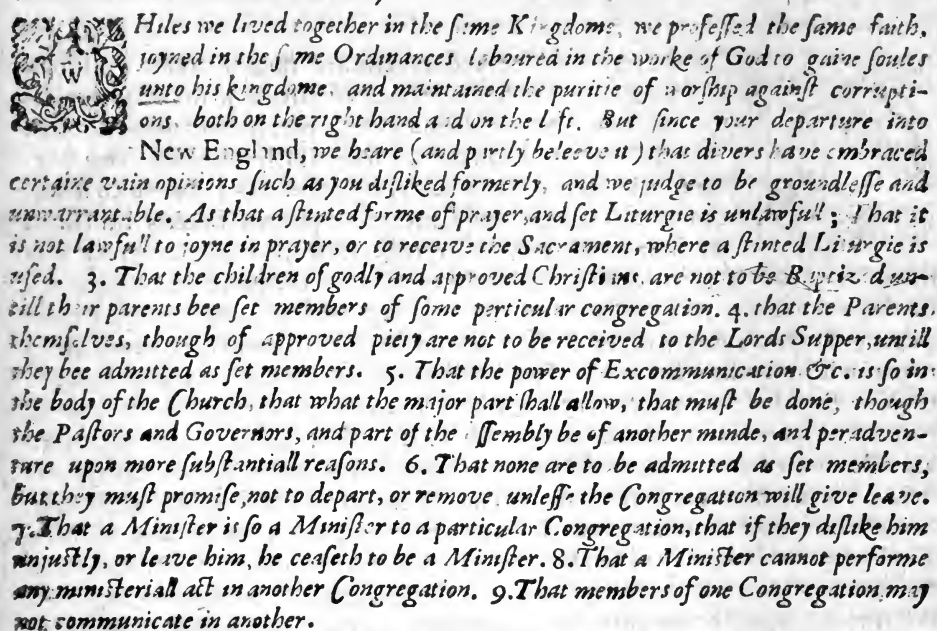 WHiles we lived together in the same Kingdome, we professed the same faith,
joyned in the same Ordinances laboured in the worke of God to gaine soules
unto his kingdome, and maintained the puritie of worship against corrupti-
ons, both on the right hand and on the left. But since your departure into
New England, we heare (and partly beleeve it) that divers have embraced
certaine vain opinions such as you disliked formerly, and we judge to be groundlesse and
unwarrantable. As that a stinted forme of prayer, and set Liturgie is unlawfull; That it
is not lawfull to joyne in prayer, or to receive the Sacrament, where a stinted Liturgie is
used. 3. That the children of godly and approved Christians, are not to be Baptized un-
till their parents bee set members of some perticular congregation. 4. that the Parents
themselves, though of approved piety are not to be received to the Lords Supper, untill
they bee admitted as set members. 5. That the power of Excommunication &c. is so in
the body of the Church, that what the major part shall allow, that must be done, though
the Pastors and Governors, and part of the assembly be of another minde, and peradven-
ture upon more substantiall reasons. 6. That none are to be admitted as set members,
but they must promise, not to depart, or remove unlesse the Congregation will give leave.
7. That a Minister is so a Minister to a particular Congregation, that if they dislike him
unjustly, or leave him, he ceaseth to be a Minister. 8. That a Minister cannot performe
any ministeriall act in another Congregation. 9. That members of one Congregation may
not communicate in another.